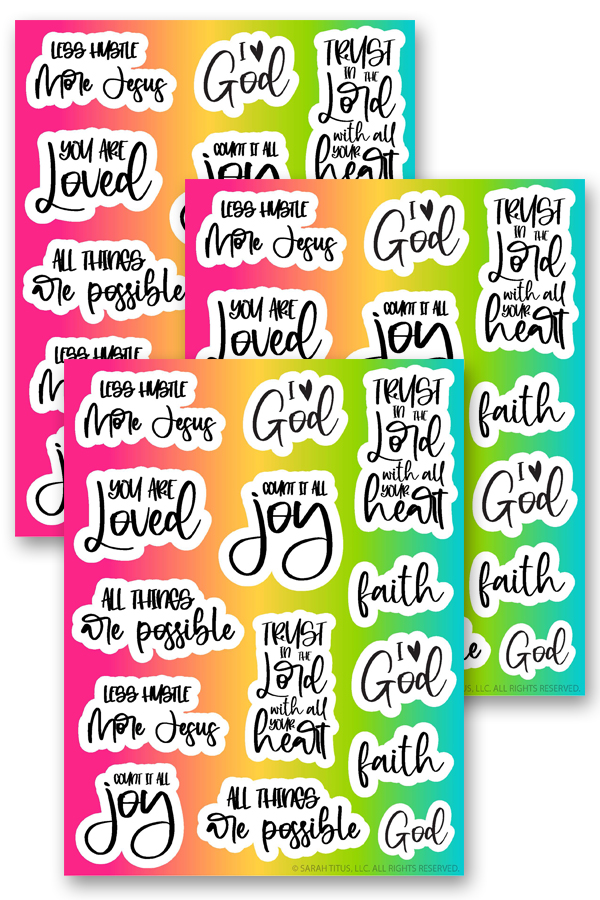 LESS HUSTLE
More Jesus
I ♥
God
TRUST
IN THE
Lord
with all
YOUR
heart
YOU ARE
Loved
COUNT IT ALL
joy
ALL THINGS
are possible
LESS HUSTLE
LESS HUSTLE
More Jesus
I ♥
God
TRUST
IN THE
Lord
with all
YOUR
heart
YOU ARE
Loved
COUNT IT ALL
joy
faith
I ♥
God
faith
God
LLC. ALL RIGHTS RESERVED.
LESS HUSTLE
More Jesus
I ♥
God
TRUST
IN THE
Lord
with all
YOUR
heart
YOU ARE
Loved
COUNT IT ALL
joy
faith
ALL THINGS
are possible
TRUST
IN THE
Lord
with all
YOUR
heart
I ♥
God
LESS HUSTLE
More Jesus
faith
COUNT IT ALL
joy
ALL THINGS
are possible
God
© SARAH TITUS, LLC. ALL RIGHTS RESERVED.